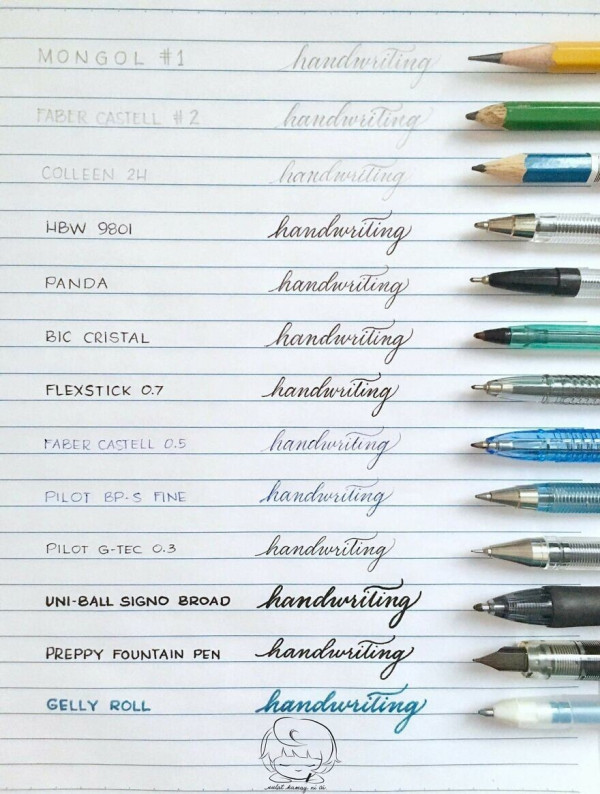 MONGOL #1 handwriting
FABER CASTELL #2 handwriting
COLLEEN 2H handwriting
HBW 9801 handwriting
PANDA handwriting
BIC CRISTAL handwriting
FLEXSTICK 0.7 handwriting
FABER CASTELL 0.5 handwriting
PILOT BP-S FINE handwriting
PILOT G-TEC 0.3 handwriting
UNI-BALL SIGNO BROAD handwriting
PREPPY FOUNTAIN PEN handwriting
GELLY ROLL handwriting
sulat kamay ni